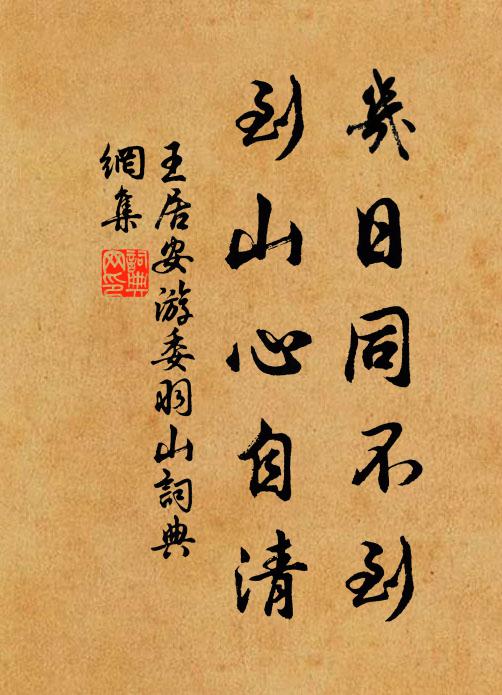 幾日同不到
到山心自清
王居安游委羽山詞典
網集
詞典
网印